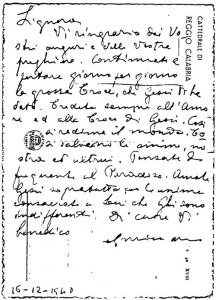 Signora,
Vi ringrazio dei Vo
stri auguri e delle Vostre
preghiere. Continuate a
portare giorno per giorno
la grossa Croce, che Gesù Vi ha
dato. Credete sempre all'Amo
re ed alla Croce di Gesù. Così
si redime il mondo. Co
si salvano le anime, no
stra ed altrui. Pensate
al Paradiso. Amate
Gesù soprattutto per le anime
consacrate a Lui che Gli sono
indifferenti. Di cuore Vi
benedico
16-12-1940
CATTEDRALE DI
REGGIO CALABRIA
XVIII